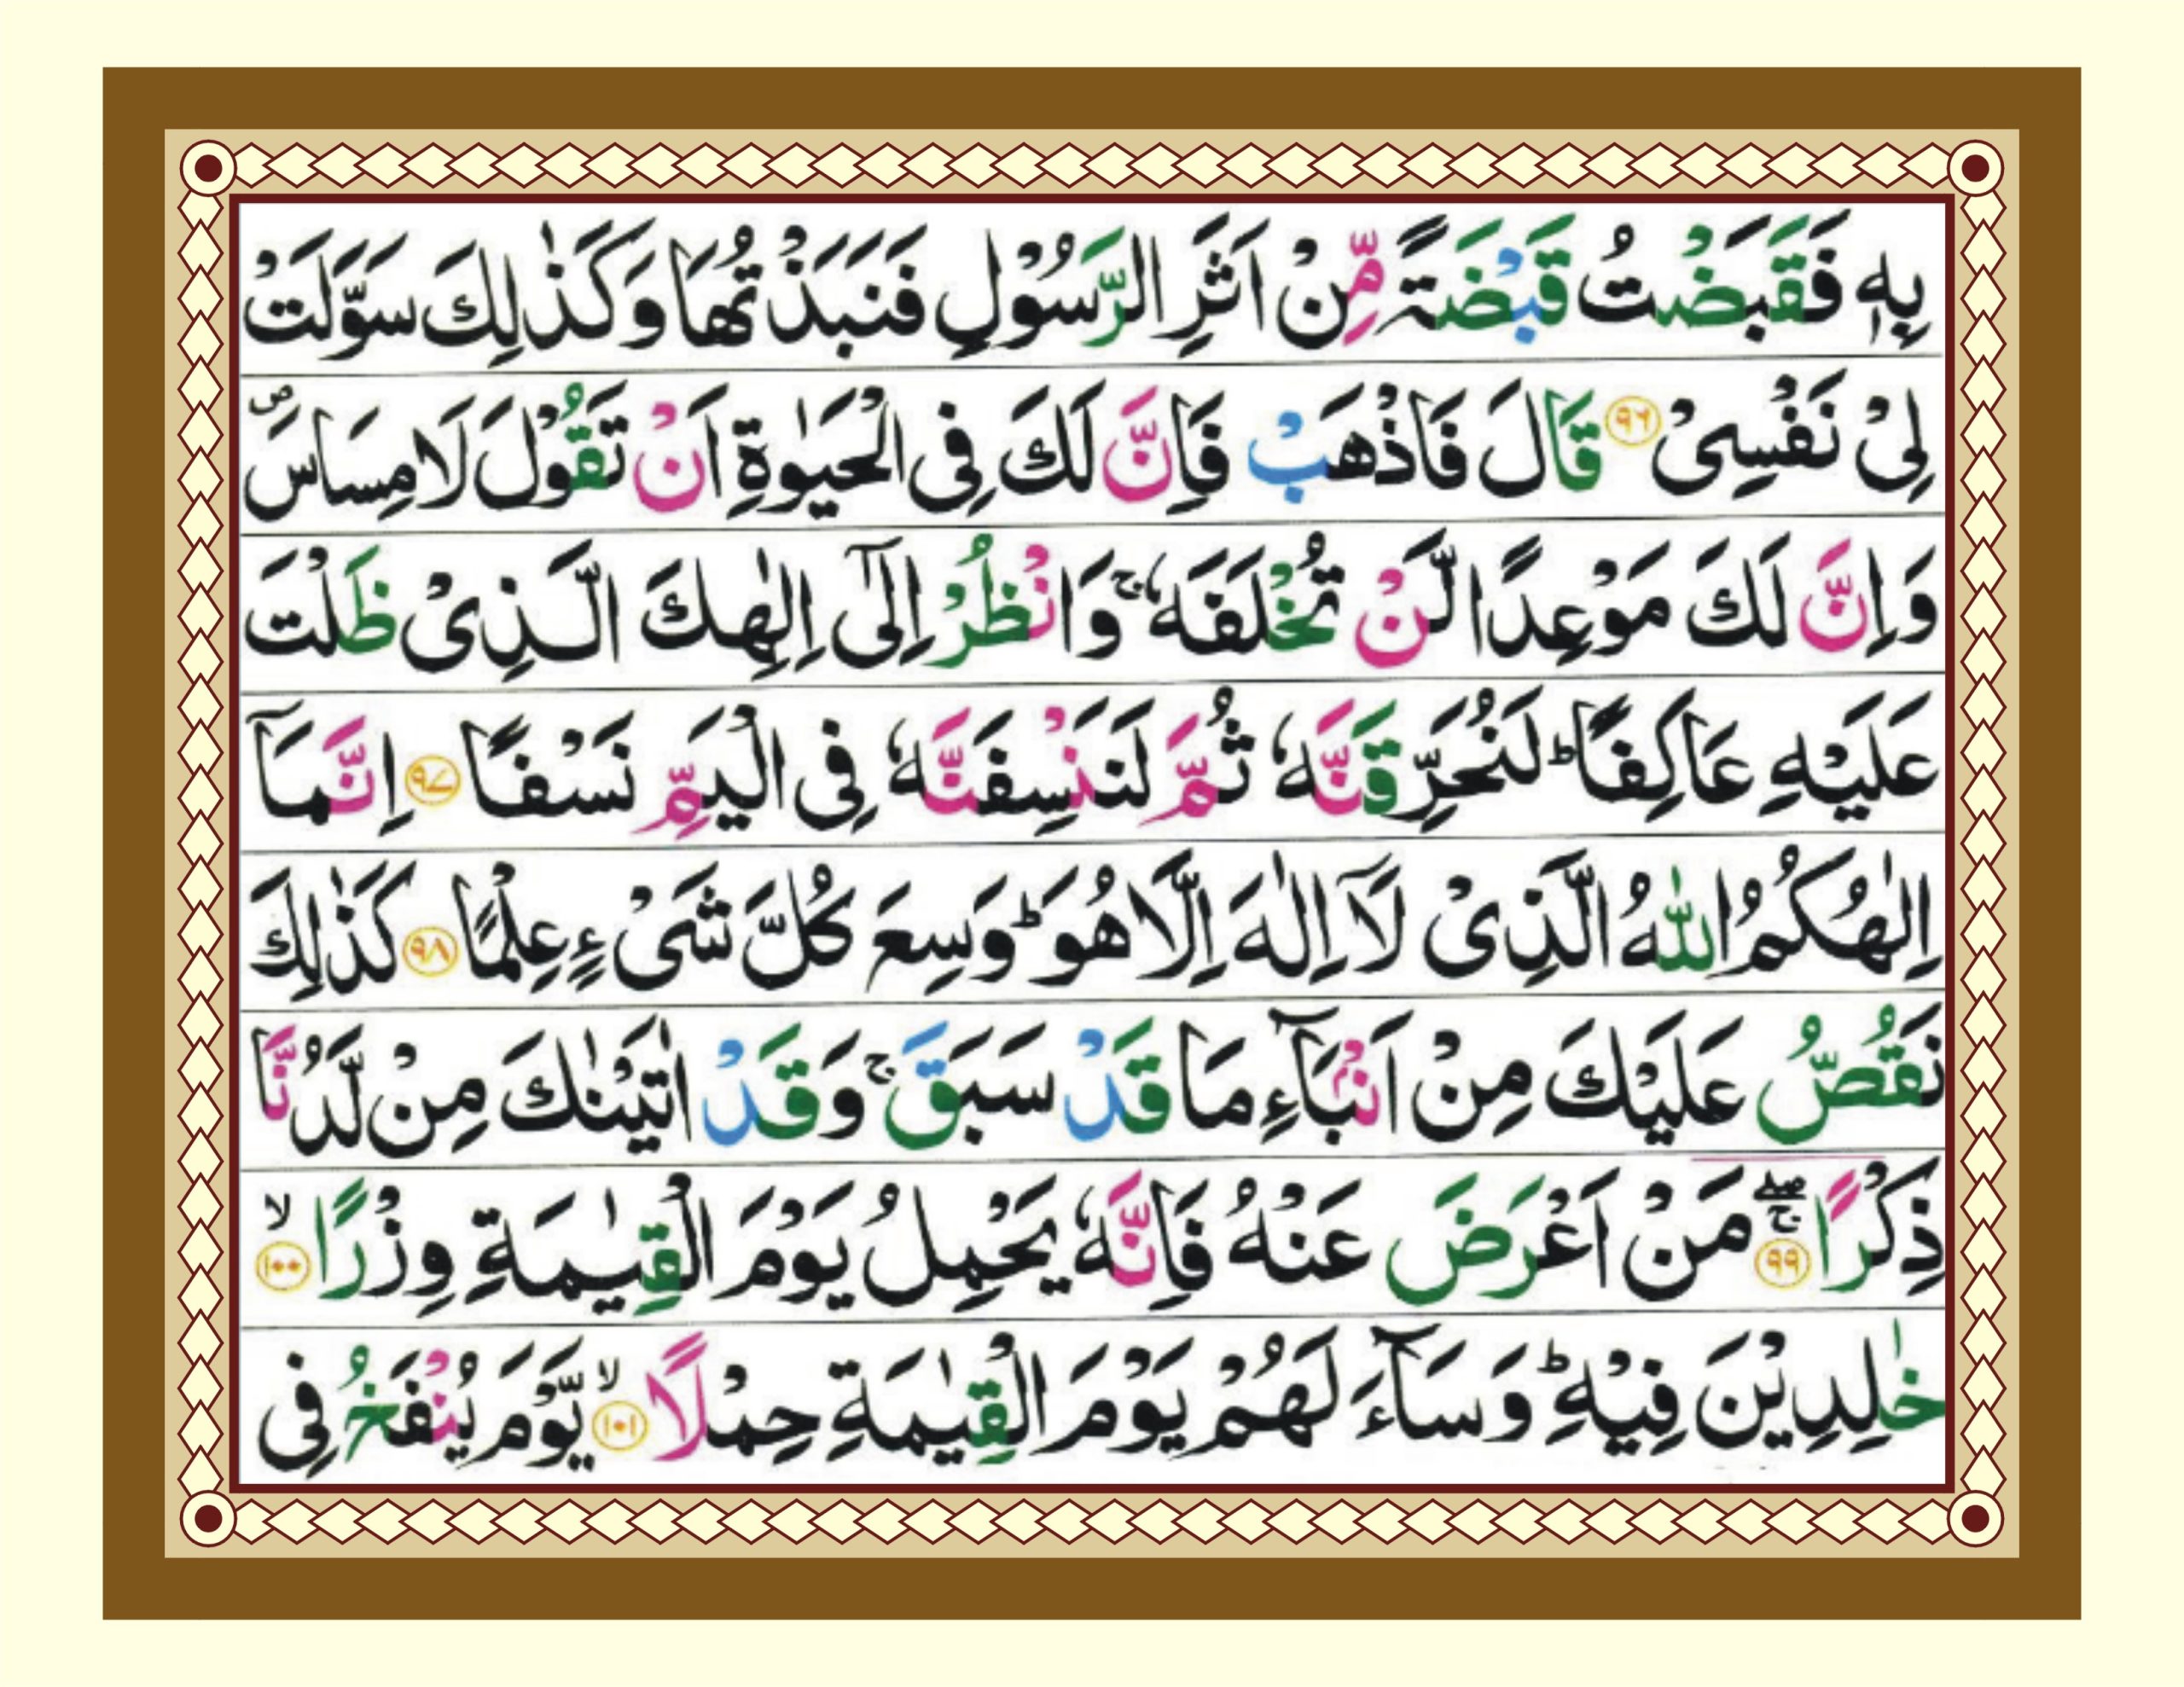 بِهٖ فَقَبَضْتُ قَبْضَةً مِّنْ اَثَرِ الرَّسُوْلِ فَنَبَذْتُهَا وَكَذٰلِكَ سَوَّلَتْ
لِیْ نَفْسِیْ ۹۶ قَالَ فَاذْهَبْ فَاِنَّ لَكَ فِی الْحَیٰوةِ اَنْ تَقُوْلَ لَا مِسَاسَ ۪
وَاِنَّ لَكَ مَوْعِدًا لَّنْ تُخْلَفَهٗ ۚ وَانْظُرْ اِلٰۤی اِلٰهِكَ الَّذِیْ ظَلْتَ
عَلَیْهِ عَاكِفًا ؕ لَنُحَرِّقَنَّهٗ ثُمَّ لَنَنْسِفَنَّهٗ فِی الْیَمِّ نَسْفًا ۹۷ اِنَّمَاۤ
اِلٰهُكُمُ اللّٰهُ الَّذِیْ لَاۤ اِلٰهَ اِلَّا هُوَ ؕ وَسِعَ كُلَّ شَیْءٍ عِلْمًا ۹۸ كَذٰلِكَ
نَقُصُّ عَلَیْكَ مِنْ اَنْۢبَآءِ مَا قَدْ سَبَقَ ۚ وَقَدْ اٰتَیْنٰكَ مِنْ لَّدُنَّا
ذِكْرًا ۹۹ ۖۚ مَنْ اَعْرَضَ عَنْهُ فَاِنَّهٗ یَحْمِلُ یَوْمَ الْقِیٰمَةِ وِزْرًا ۱۰۰ ۙ
خٰلِدِیْنَ فِیْهِ ؕ وَسَآءَ لَهُمْ یَوْمَ الْقِیٰمَةِ حِمْلًا ۱۰۱ ۙ یَّوْمَ یُنْفَخُ فِی